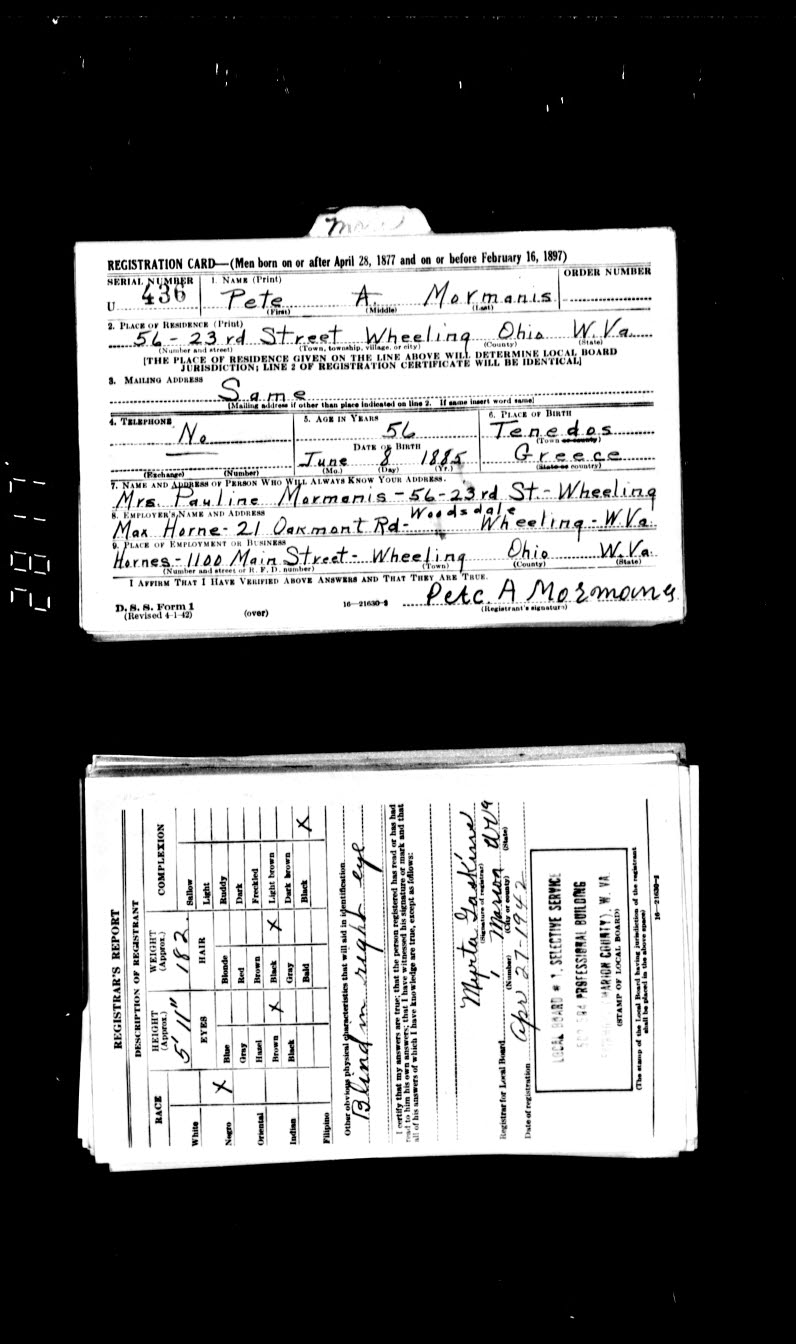 REGISTRATION CARD—(Men born on or after April 28, 1877 and on or before February 16, 1897)
SERIAL NUMBER 1. NAME (Print) ORDER NUMBER
U 436 Pete A. Mormanis
(First) (Middle) (Last)
2. PLACE OF RESIDENCE (Print)
56 - 23rd Street Wheeling Ohio W.Va.
(Number and street) (Town, township, village, or city) (County) (State)
[THE PLACE OF RESIDENCE GIVEN ON THE LINE ABOVE WILL DETERMINE LOCAL BOARD
JURISDICTION; LINE 2 OF REGISTRATION CERTIFICATE WILL BE IDENTICAL]
3. MAILING ADDRESS
Same
[Mailing address if other than place indicated on line 2. If same insert word same]
4. TELEPHONE 5. AGE IN YEARS 6. PLACE OF BIRTH
No 56 Tenedos
(Town or county)
DATE OF BIRTH
June 8 1885 Greece
(Exchange) (Number) (Mo.) (Day) (Yr.) (State or country)
7. NAME AND ADDRESS OF PERSON WHO WILL ALWAYS KNOW YOUR ADDRESS.
Mrs. Pauline Mormanis - 56-23rd St. - Wheeling
8. EMPLOYER'S NAME AND ADDRESS
Max Horne - 21 Oakmont Rd - Woodsdale Wheeling - W.Va.
9. PLACE OF EMPLOYMENT OR BUSINESS
Hornes - 1100 Main Street - Wheeling Ohio W.Va.
(Number and street or R. F. D. number) (Town) (County) (State)
I AFFIRM THAT I HAVE VERIFIED ABOVE ANSWERS AND THAT THEY ARE TRUE.
D. S. S. Form 1
(Revised 4-1-42) (over) 16—21630-2 Pete. A Mormanis
(Registrant's signature)
REGISTRAR'S REPORT
DESCRIPTION OF REGISTRANT
RACE HEIGHT (Approx.) WEIGHT (Approx.) COMPLEXION
5' 11" 182.
White EYES HAIR Sallow
Light
Negro X Blue Blonde Ruddy
Gray Red Dark
Oriental Hazel Brown Freckled
Brown X Black X Light brown
Indian Black Gray Dark brown
Bald Black X
Filipino
Other obvious physical characteristics that will aid in identification
Blind in right eye
I certify that my answers are true; that the person registered has read or has had
read to him his own answers; that I have witnessed his signature or mark and that
all of his answers of which I have knowledge are true, except as follows:
Myrta Gaskins
(Signature of registrar)
Registrar for Local Board 1 Marion WVa
(Number) (City or county) (State)
Date of registration Apr 27-1942
LOCAL BOARD # 1, SELECTIVE SERVICE
PROFESSIONAL BUILDING
MARION COUNTY), W. VA.
(STAMP OF LOCAL BOARD)
(The stamp of the Local Board having jurisdiction of the registrant
shall be placed in the above space)
16—21630-2